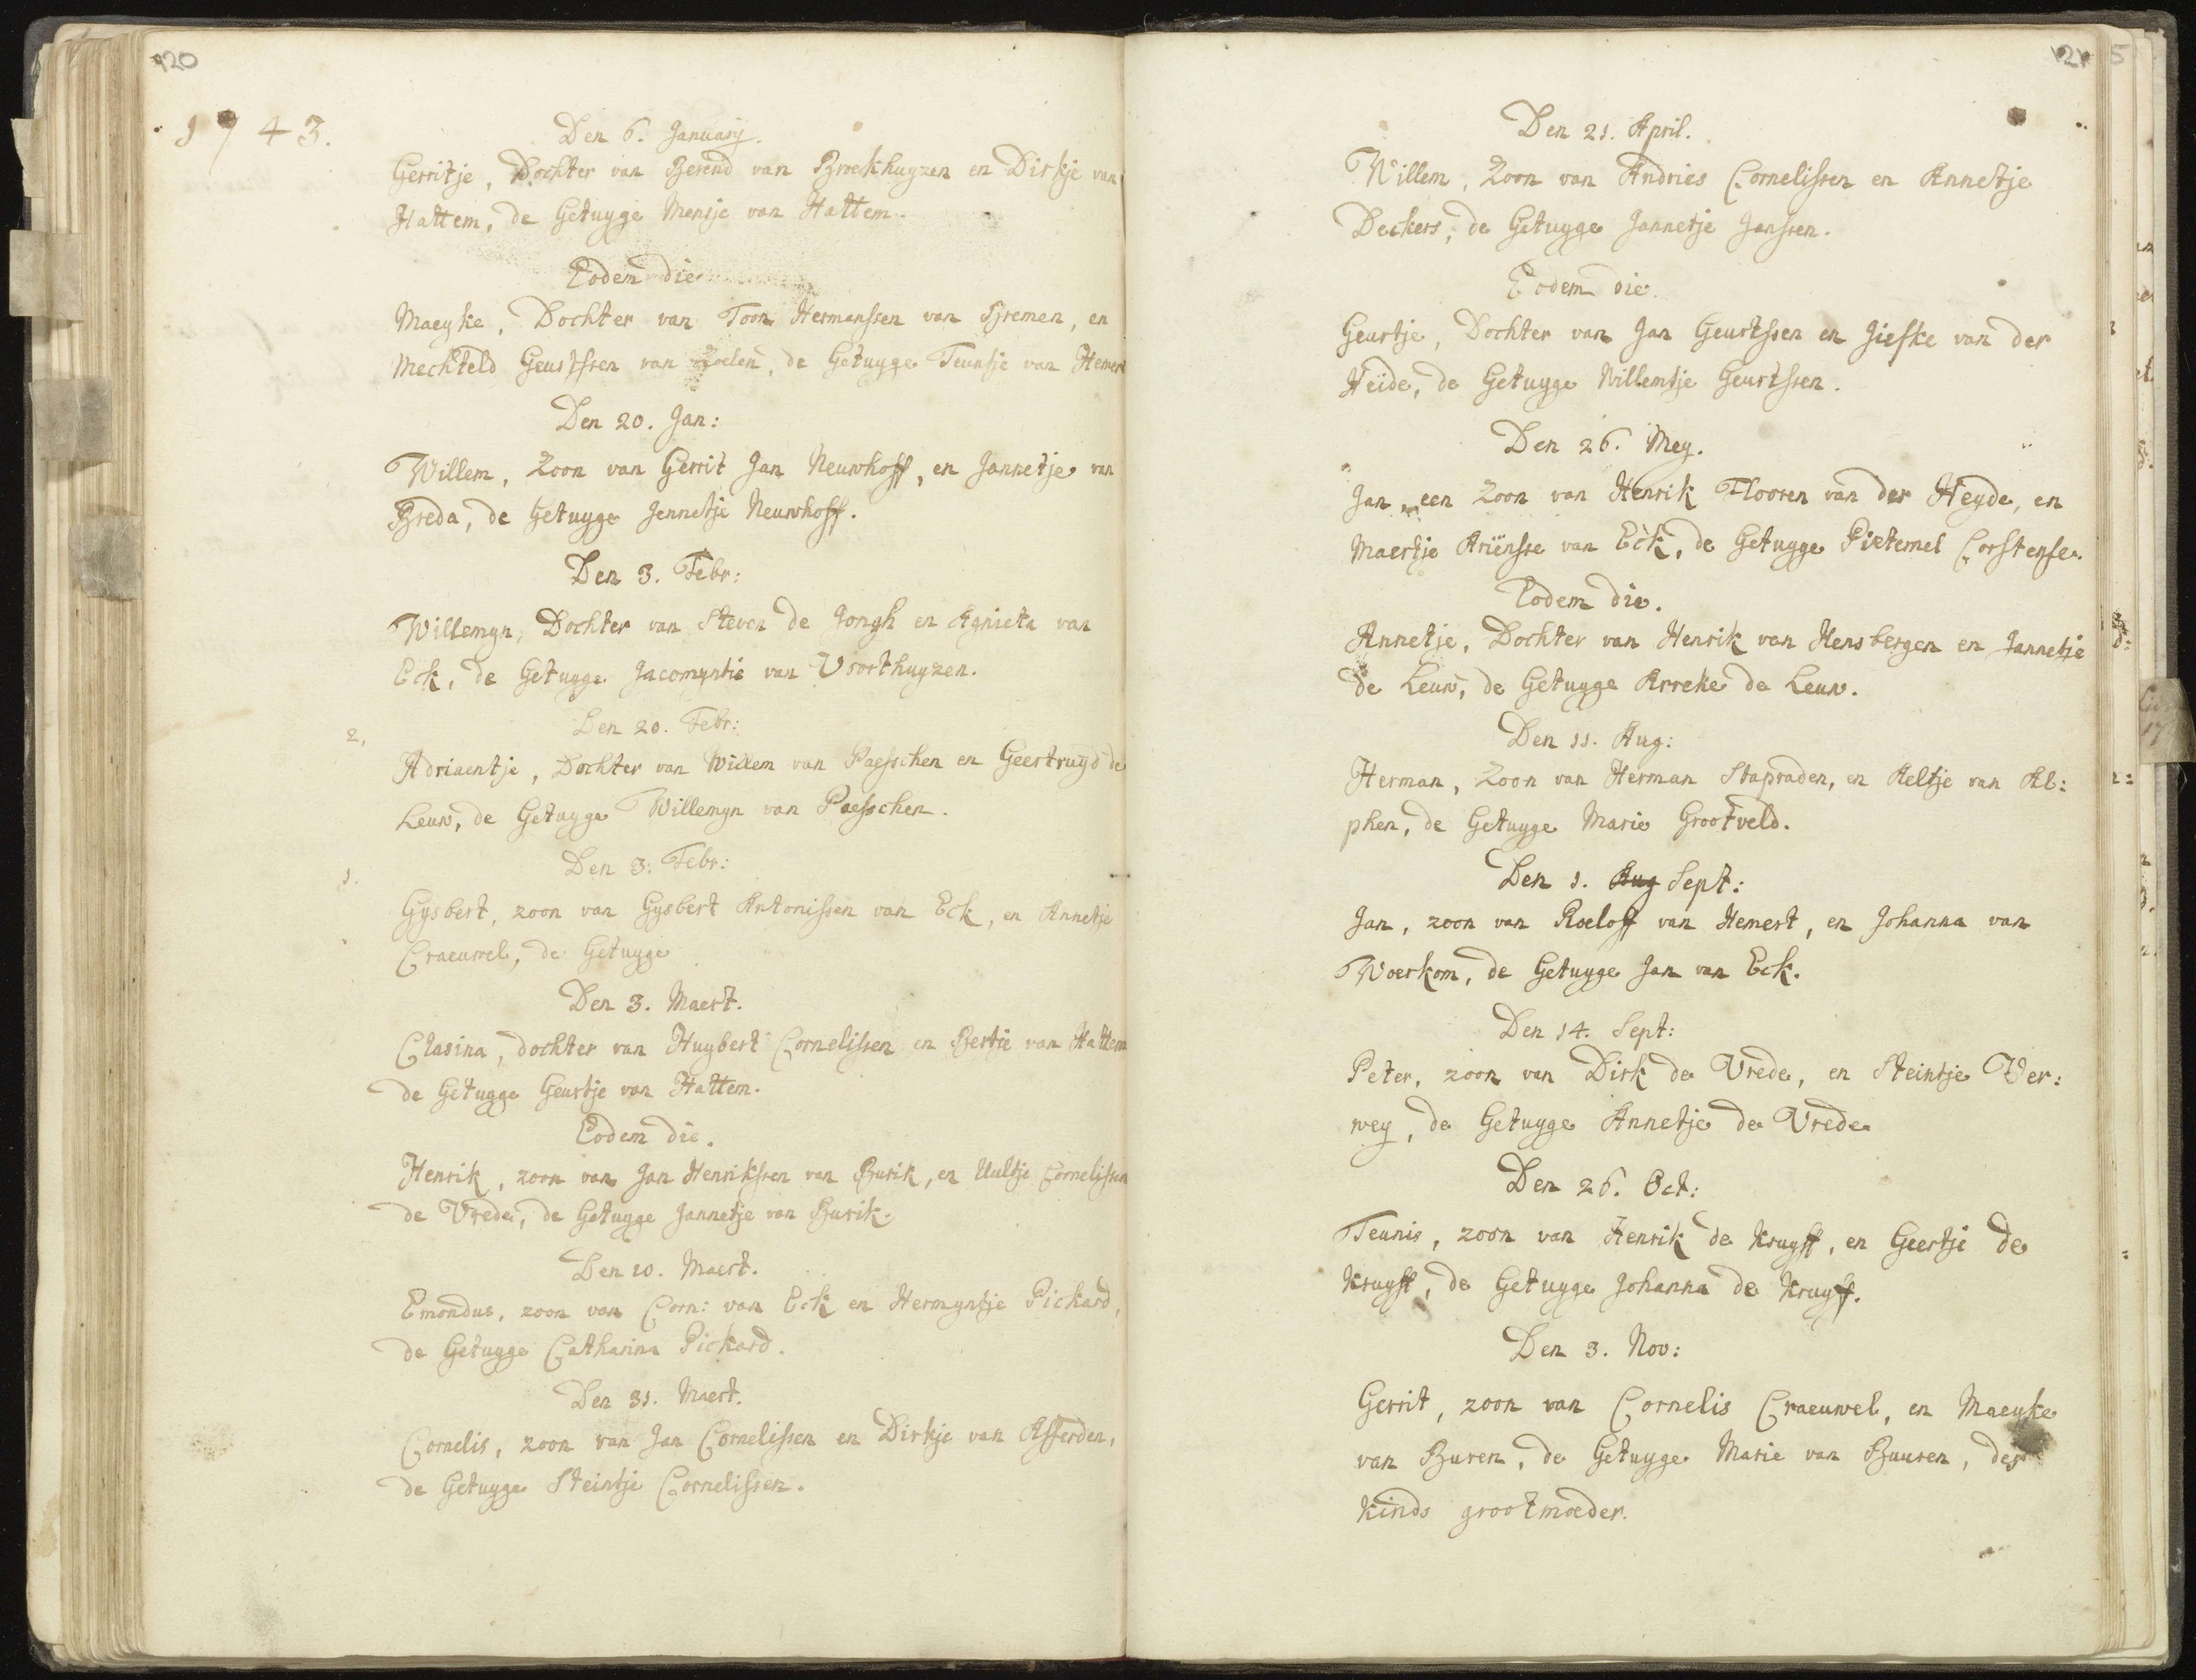 120
1743.
Den 6. January.
Gerritje, Dochter van Berend van Broekhuyzen en Dirkje van
Hattem, de Getuyge Mensje van Hattem.
Eodem die
Maeyke, Dochter van Toon Hermanssen van Bremen, en
Mechteld Geurtssen van Zoelen, de Getuyge Teuntje van Hemert
Den 20. Jan:
Willem, Zoon van Gerrit Jan Neuwhoff, en Jannetje van
Breda, de Getuyge Jennetje Neuwhoff.
Den 3. Febr:
Willemyn, Dochter van Steven de Jongh en Agnieta van
Eck, de Getuyge Jacomyntie van Voorthuyzen.
2, Den 20. Febr:
Adriaentje, Dochter van Willem van Paesschen en Geertruyd de
Leuw, de Getuyge Willemyn van Paesschen.
1. Den 3. Febr:
Gysbert, zoon van Gysbert Antonissen van Eck, en Annetje
Craeuwel, de Getuyge
Den 3. Maert.
Clasina, dochter van Huybert Cornelissen en Bertje van Hattem
de Getuyge Geurtje van Hattem.
Eodem die.
Henrik, zoon van Jan Henrikssen van Burik, en Uultje Cornelissen
de Vrede, de Getuyge Jannetje van Burik.
Den 10. Maert.
Emondus, zoon van Corn: van Eck en Hermyntje Pickard,
de Getuyge Catharina Pickard.
Den 31. Maert.
Cornelis, zoon van Jan Cornelissen en Dirkje van Afferden,
de Getuyge Steintje Cornelissen.
121
Den 21. April.
Willem, Zoon van Andries Cornelissen en Annetje
Deckers, de Getuyge Jannetje Janssen.
Eodem die.
Geurtje, Dochter van Jan Geurtssen en Jiefke van der
Heide, de Getuyge Willemtje Geurtssen.
Den 26. Mey.
Jan, een Zoon van Henrik Flooren van der Heyde, en
Maertje Ariënsse van Eck, de Getuyge Pieternel Corstense.
Eodem die.
Annetje, Dochter van Henrik van Hensbergen en Jannetje
de Leuw, de Getuyge Arreke de Leuw.
Den 11. Aug:
Herman, Zoon van Herman Stapraden, en Aeltje van Al:
phen, de Getuyge Marie Grootveld.
Den 1. Aug Sept:
Jan, zoon van Roeloff van Hemert, en Johanna van
Woerkom, de Getuyge Jan van Eck.
Den 14. Sept:
Peter, zoon van Dirk de Vrede, en Steintje Ver:
wey, de Getuyge Annetje de Vrede
Den 26. Oct:
Teunis, zoon van Henrik de Kruyff, en Geertje de
Kruyff, de Getuyge Johanna de Kruyff.
Den 3. Nov:
Gerrit, zoon van Cornelis Craeuwel, en Maeyke
van Buren, de Getuyge Marie van Buuren, des
Kinds grootmoeder.